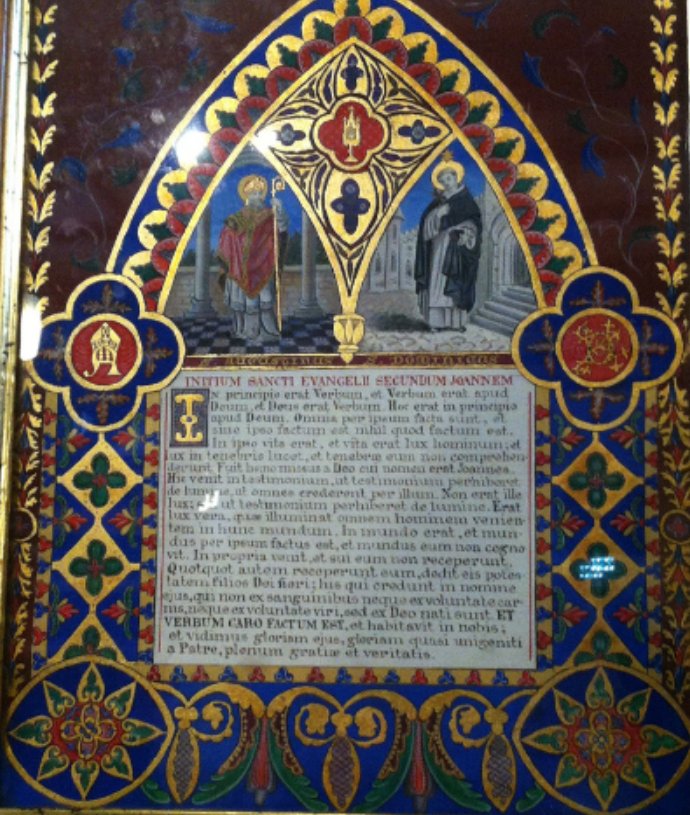 S. AUGUSTINUS S. DOMINICUS
INITIUM SANCTI EVANGELII SECUNDUM JOANNEM
IN principio erat Verbum, et Verbum erat apud
Deum, et Deus erat Verbum. Hoc erat in principio
apud Deum. Omnia per ipsum facta sunt, et
sine ipso factum est nihil quod factum est.
In ipso vita erat, et vita erat lux hominum; et
lux in tenebris lucet, et tenebræ eum non comprehen-
derunt. Fuit homo missus a Deo cui nomen erat Joannes.
Hic venit in testimonium, ut testimonium perhiberet
de lumine, ut omnes crederent per illum. Non erat ille
lux; sed ut testimonium perhiberet de lumine. Erat
lux vera, quæ illuminat omnem hominem venien-
tem in hunc mundum. In mundo erat, et mun-
dus per ipsum factus est, et mundus eum non cogno
vit. In propria venit, et sui eum non receperunt.
Quotquot autem receperunt eum, dedit eis potes-
tatem filios Dei fieri; his qui credunt in nomine
ejus, qui non ex sanguinibus neque ex voluntate car-
nis, neque ex voluntate viri, sed ex Deo nati sunt. ET
VERBUM CARO FACTUM EST, et habitavit in nobis;
et vidimus gloriam ejus, gloriam quasi unigeniti
a Patre, plenum gratiæ et veritatis.